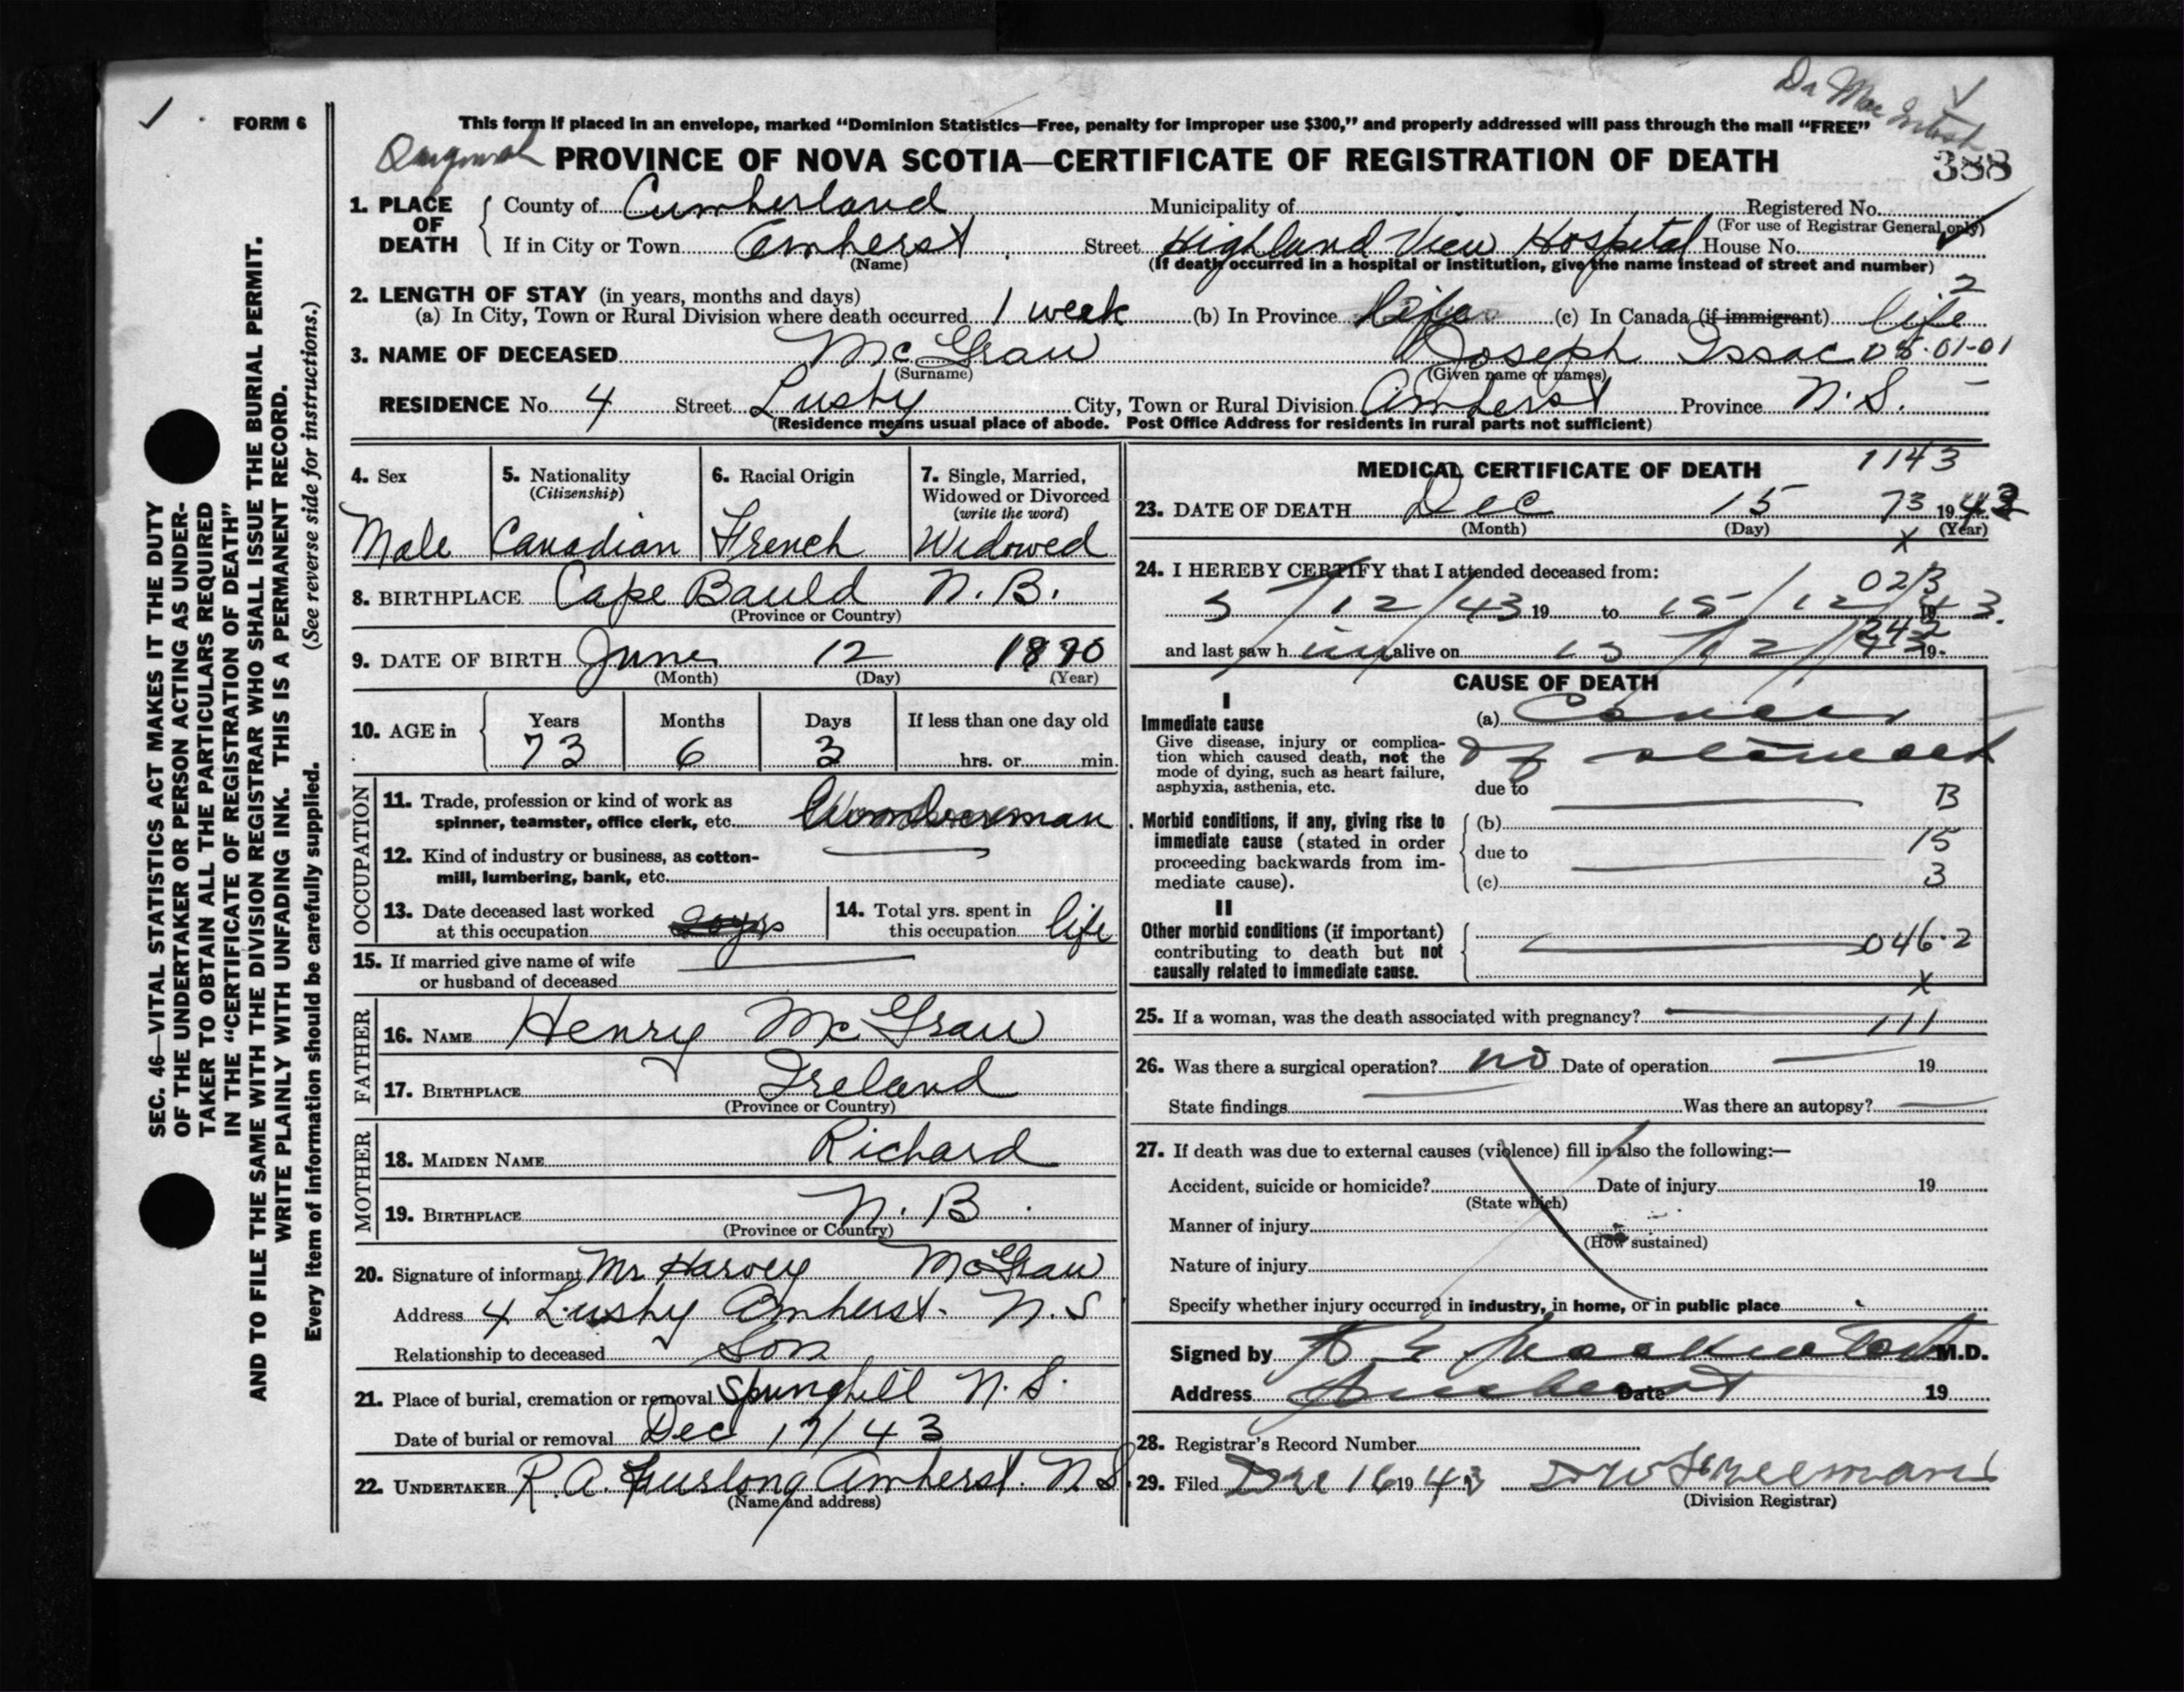 Dr Mac Intosh
FORM 6
This form if placed in an envelope, marked “Dominion Statistics—Free, penalty for improper use $300,” and properly addressed will pass through the mail “FREE”
PROVINCE OF NOVA SCOTIA—CERTIFICATE OF REGISTRATION OF DEATH
388
1. PLACE OF DEATH
County of Cumberland Municipality of Registered No.
(For use of Registrar General only)
If in City or Town Amherst Street Highland View Hospital House No.
(Name) (If death occurred in a hospital or institution, give the name instead of street and number)
2. LENGTH OF STAY (in years, months and days) 2
(a) In City, Town or Rural Division where death occurred 1 week (b) In Province life (c) In Canada (if immigrant) life
3. NAME OF DECEASED McGraw Joseph Issac 08-01-01
(Surname) (Given name or names)
RESIDENCE No. 4 Street Lusby City, Town or Rural Division Amherst Province N.S.
(Residence means usual place of abode. Post Office Address for residents in rural parts not sufficient)
4. Sex
Male
5. Nationality
(Citizenship)
Canadian
6. Racial Origin
French
7. Single, Married,
Widowed or Divorced
(write the word)
Widowed
8. BIRTHPLACE Cape Bauld N.B.
(Province or Country)
9. DATE OF BIRTH June 12 1870
(Month) (Day) (Year)
10. AGE in
Years Months Days If less than one day old
73 6 3 hrs. or min.
OCCUPATION
11. Trade, profession or kind of work as
spinner, teamster, office clerk, etc.
12. Kind of industry or business, as cotton-
mill, lumbering, bank, etc.
13. Date deceased last worked
at this occupation
14. Total yrs. spent in
this occupation life
15. If married give name of wife
or husband of deceased
FATHER
16. NAME Henry McGraw
17. BIRTHPLACE Ireland
(Province or Country)
MOTHER
18. MAIDEN NAME Richard
19. BIRTHPLACE N.B.
(Province or Country)
20. Signature of informant Mr Harvey McGraw
Address 4 Lusby Amherst. N.S
Relationship to deceased Son
21. Place of burial, cremation or removal Springhill N.S.
Date of burial or removal Dec 17/43
22. UNDERTAKER R.A. Furlong Amherst. N.S.
(Name and address)
MEDICAL CERTIFICATE OF DEATH 1143
23. DATE OF DEATH Dec 15 73 1943
(Month) (Day) (Year)
x
24. I HEREBY CERTIFY that I attended deceased from: 02/3
5/12/43 19 to 15/12/43.
242
and last saw him alive on 15/12/43 19
CAUSE OF DEATH
I
Immediate cause
Give disease, injury or complica-
tion which caused death, not the
mode of dying, such as heart failure,
asphyxia, asthenia, etc.
(a) Cancer
of stomach
due to
B
Morbid conditions, if any, giving rise to
immediate cause (stated in order
proceeding backwards from im-
mediate cause).
(b)
15
due to
3
(c)
II
Other morbid conditions (if important)
contributing to death but not
causally related to immediate cause.
046.2
x
25. If a woman, was the death associated with pregnancy?
111
26. Was there a surgical operation? no Date of operation 19
State findings Was there an autopsy?
27. If death was due to external causes (violence) fill in also the following:—
Accident, suicide or homicide? Date of injury 19
(State which)
Manner of injury
(How sustained)
Nature of injury
Specify whether injury occurred in industry, in home, or in public place
Signed by M.D.
Address Amherst Date 19
28. Registrar's Record Number
29. Filed Dec 16 1943
(Division Registrar)
SEC. 46—VITAL STATISTICS ACT MAKES IT THE DUTY
OF THE UNDERTAKER OR PERSON ACTING AS UNDER-
TAKER TO OBTAIN ALL THE PARTICULARS REQUIRED
IN THE “CERTIFICATE OF REGISTRATION OF DEATH”
AND TO FILE THE SAME WITH THE DIVISION REGISTRAR WHO SHALL ISSUE THE BURIAL PERMIT.
WRITE PLAINLY WITH UNFADING INK. THIS IS A PERMANENT RECORD.
Every item of information should be carefully supplied. (See reverse side for instructions.)